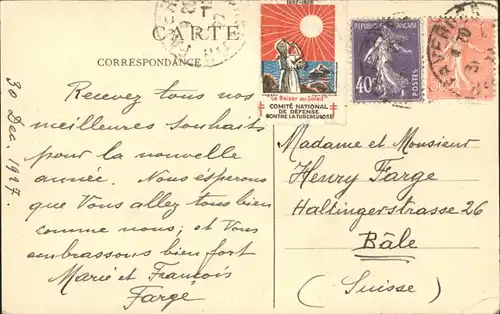 CARTE
CORRESPONDANCE
1927-1928
Le Baiser au Soleil
COMITÉ NATIONAL
DE DÉFENSE
CONTRE LA TUBERCULOSE
RÉPUBLIQUE FRANÇAISE
40c
POSTES
30 Dec. 1927.
Recevez tous nos
meilleures souhaits
pour la nouvelle
année. Nous esperons
que Vous allez tous bien
comme nous; et Vous
embrassons bien fort
Marie et François
Farge
Madame et Monsieur
Henry Farge
Haltingerstrasse 26
Bâle
(Suisse)